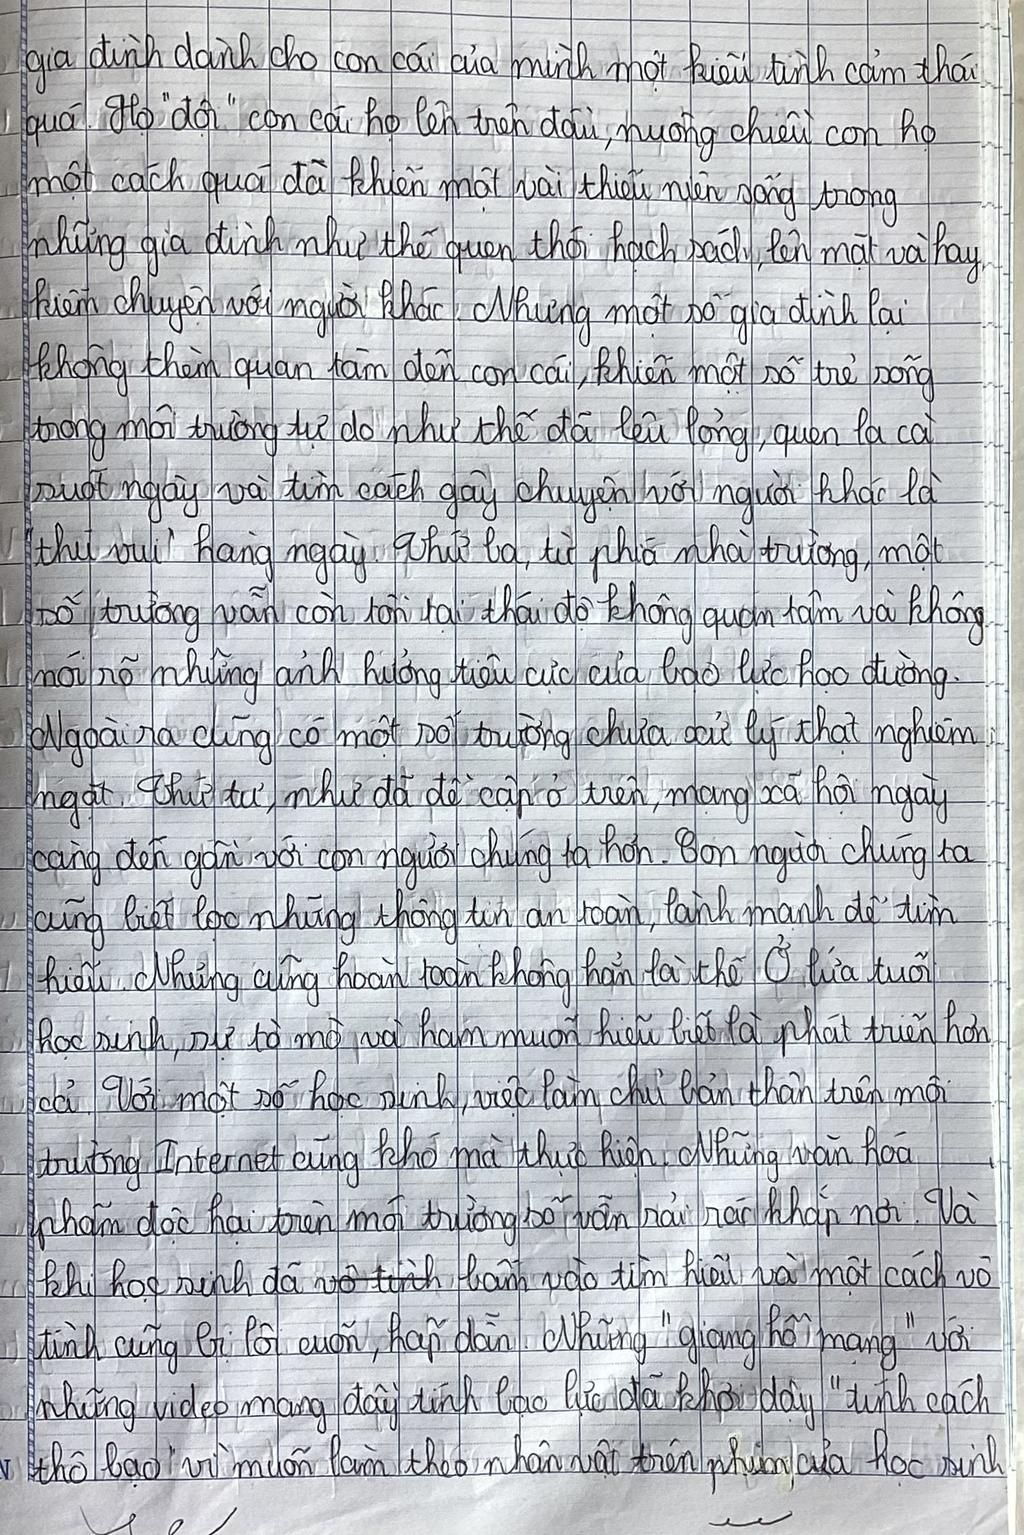 gia đình dành cho con cái của mình một kiểu tình cảm thái
quá. Họ "đội" con cái họ lên trên đầu, nuông chiều con họ
một cách quá đã khiến một vài thiếu niên sống trong
những gia đình như thế quen thói hạch sách, lên mặt và hay
kiếm chuyện với người khác. Nhưng một số gia đình lại
không thèm quan tâm đến con cái, khiến một số trẻ sống
trong môi trường tự do như thế đã lêu lổng, quen la cà
suốt ngày và tìm cách gây chuyện với người khác là
"thú vui" hàng ngày. Thứ ba, từ phía nhà trường, một
số trường vẫn còn tồn tại thái độ không quan tâm và không
nói rõ những ảnh hưởng tiêu cực của bạo lực học đường.
Ngoài ra cũng có một số trường chưa xử lý thật nghiêm
ngặt. Thứ tư, như đã đề cập ở trên, mạng xã hội ngày
càng đến gần với con người chúng ta hơn. Con người chúng ta
cũng biết lọc những thông tin an toàn, lành mạnh để tìm
hiểu. Nhưng cũng hoàn toàn không hẳn là thế. Ở lứa tuổi
học sinh, sự tò mò và ham muốn hiểu biết là phát triển hơn
cả. Với một số học sinh, việc làm chủ bản thân trên môi
trường Internet cũng khó mà thực hiện. Những văn hoá
phẩm độc hại trên môi trường số vẫn rải rác khắp nơi. Và
khi học sinh đã vô tình bấm vào tìm hiểu và một cách vô
tình cũng bị lôi cuốn, hấp dẫn. Những "giang hồ mạng" với
những video mang đầy tính bạo lực đã khơi dậy "tính cách
thô bạo" vì muốn làm theo nhân vật trên phim của học sinh